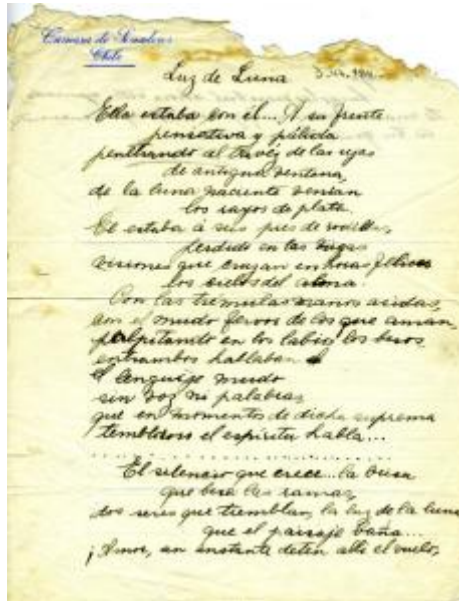 Camara de Senadores
Chile
Luz de Luna
Ella estaba con él... A su frente
pensativa y pálida
penetrando al través de las rejas
de antigua ventana,
de la luna naciente venían
los rayos de plata.
El estaba á sus pies de rodillas,
perdido en las vagas
visiones que cruzan en horas felices
los cielos del alma.
Con las trémulas manos asidas,
con el mudo fervor de los que aman,
palpitando en los labios los besos,
entrambos hablaban
el lenguaje mudo
sin voz ni palabras
que en momentos de dicha suprema
tembloroso el espíritu habla...
El silencio que crece... la brisa
que besa las ramas,
dos seres que tiemblan, la luz de la luna
que el paisaje baña...
¡Amor, un instante detén allí el vuelo,